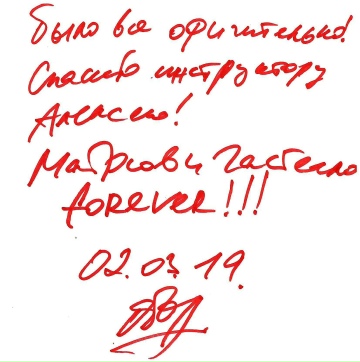 Было все офигительно!
Спасибо инструктору
Алексею!
Матросов и Гастелло
forever!!!
02.03.19